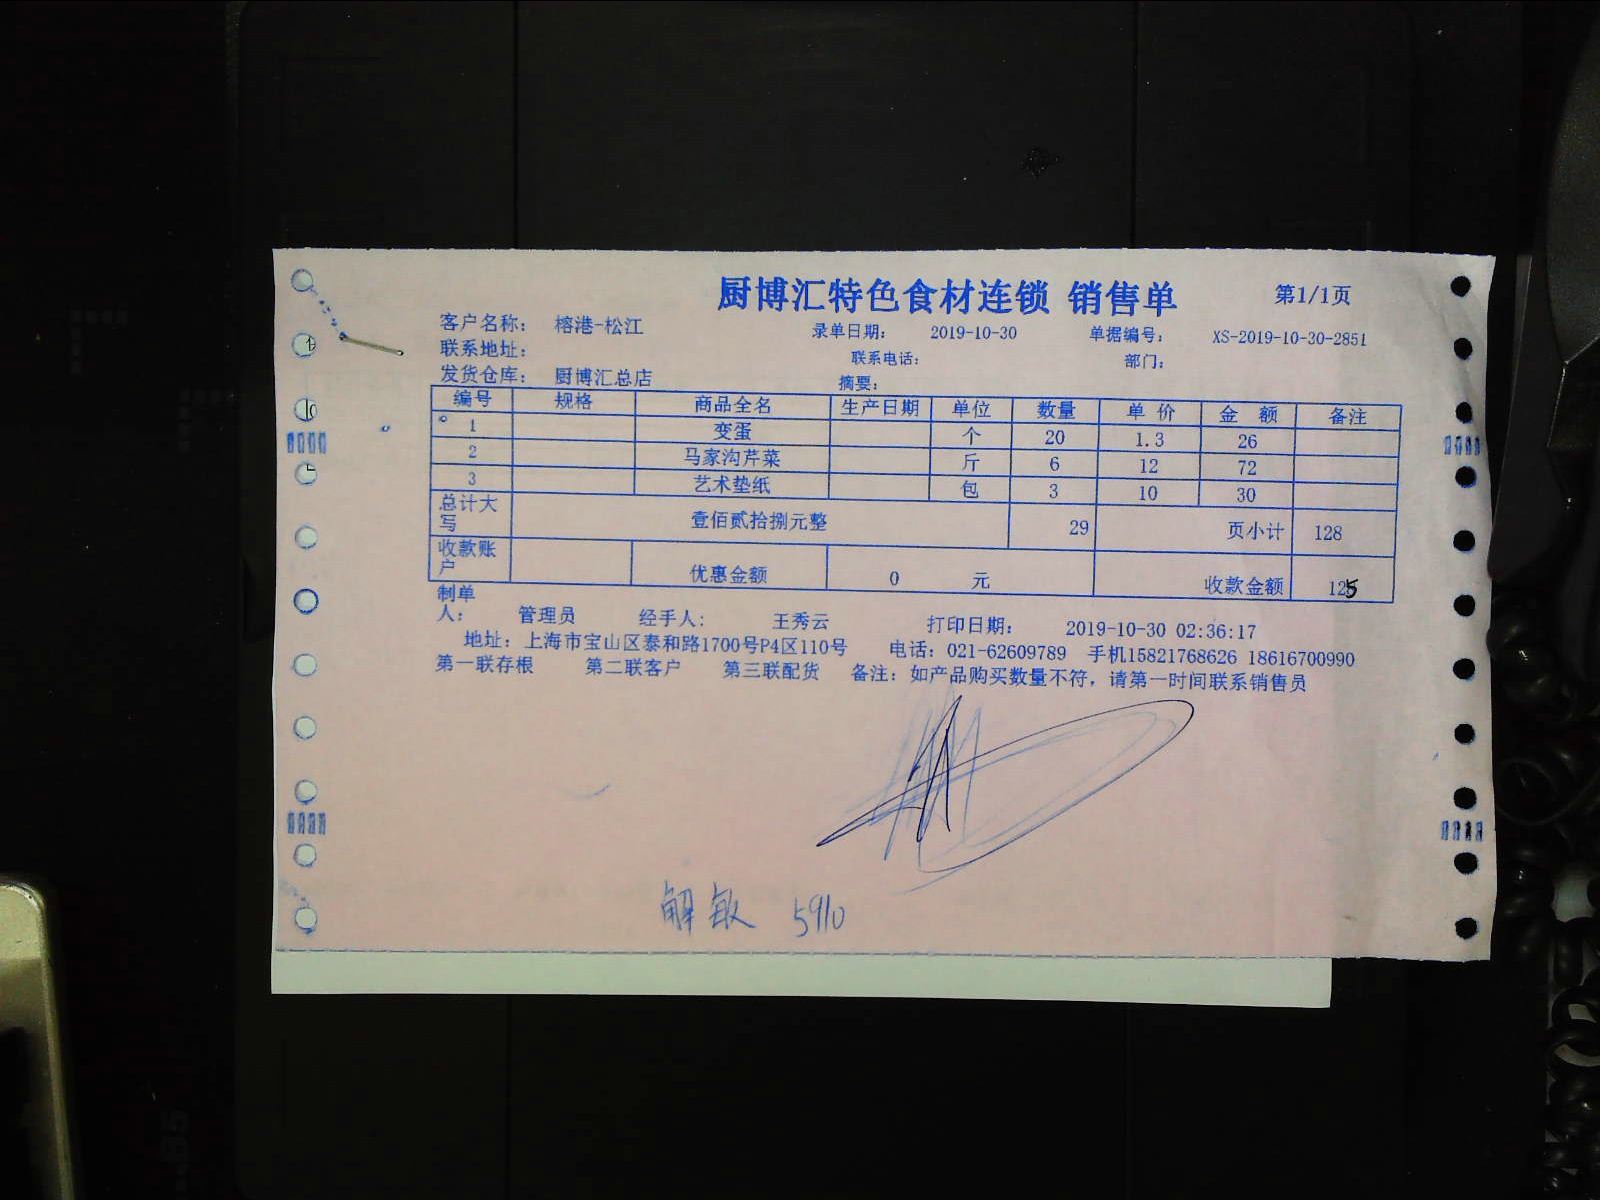 厨博汇特色食材连锁 销售单 第1/1页
客户名称: 榕港-松江 录单日期: 2019-10-30 单据编号: XS-2019-10-30-2851
联系地址: 联系电话: 部门:
发货仓库: 厨博汇总店 摘要:
编号 规格 商品全名 生产日期 单位 数量 单价 金额 备注
1 变蛋 个 20 1.3 26
2 马家沟芹菜 斤 6 12 72
3 艺术垫纸 包 3 10 30
总计大写 壹佰贰拾捌元整 29 页小计 128
收款账户 优惠金额 0 元 收款金额 125
制单人: 管理员 经手人: 王秀云 打印日期: 2019-10-30 02:36:17
地址: 上海市宝山区泰和路1700号P4区110号 电话: 021-62609789 手机15821768626 18616700990
第一联存根 第二联客户 第三联配货 备注: 如产品购买数量不符，请第一时间联系销售员
解敏 5910